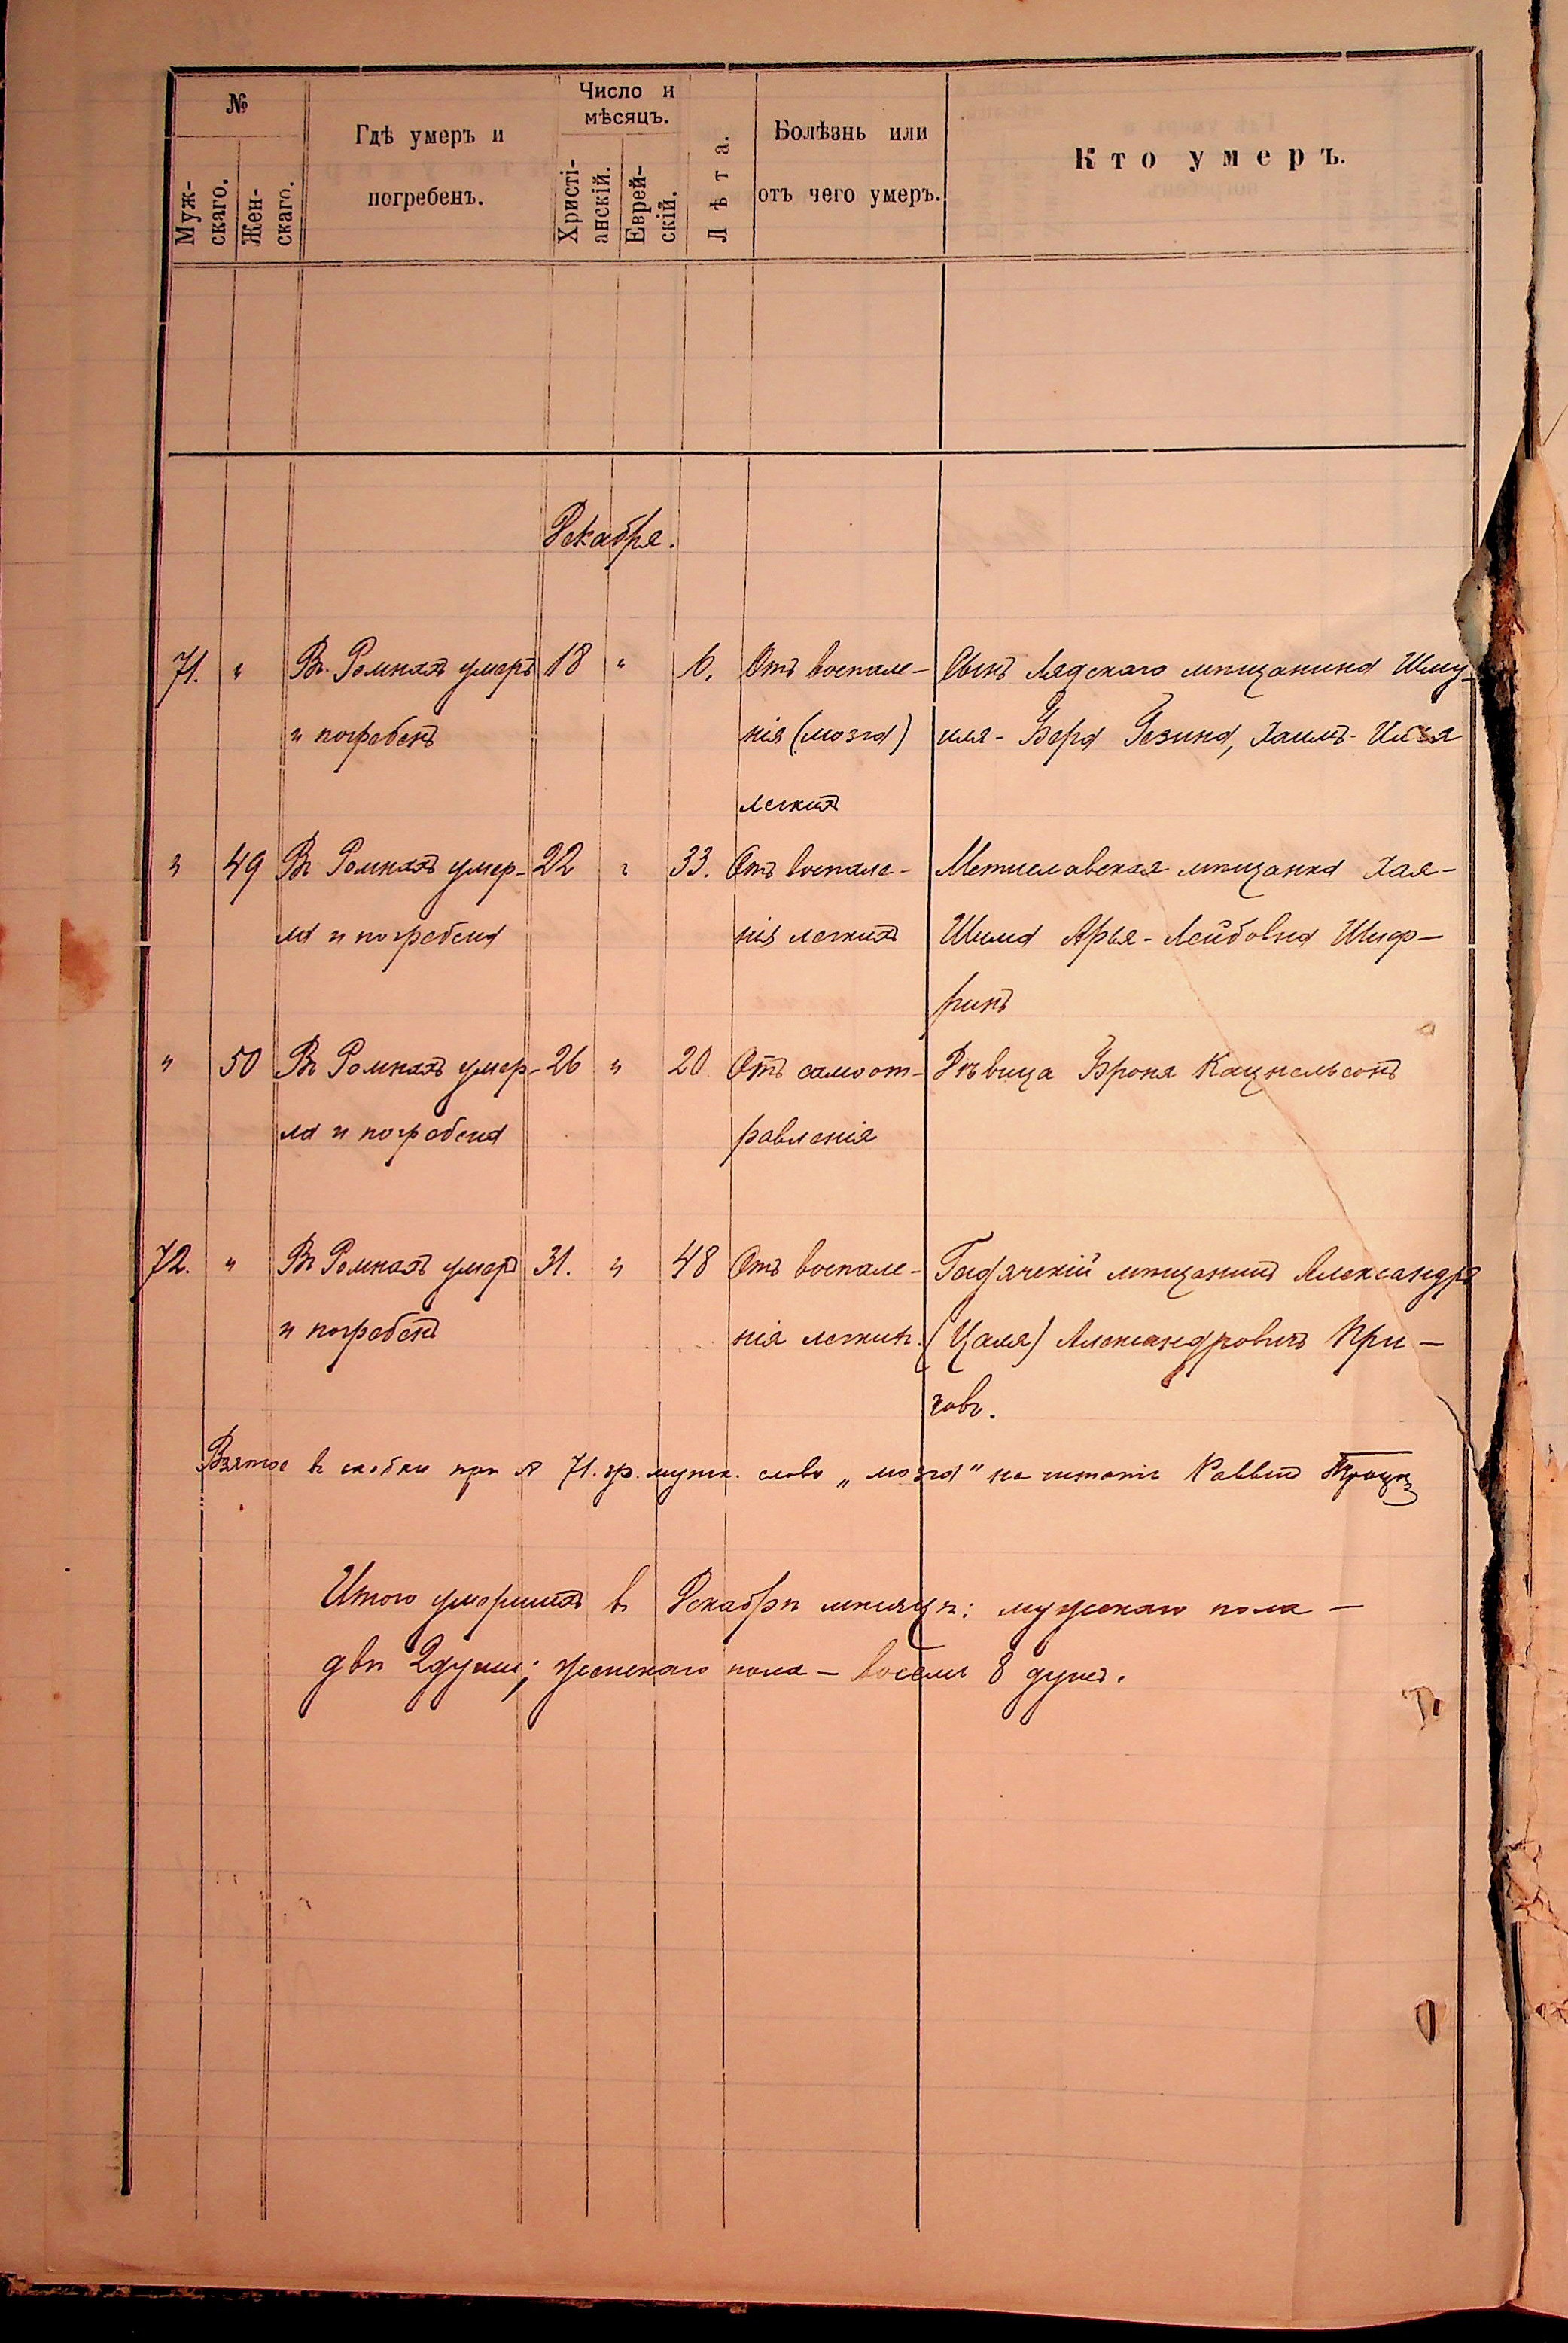 №
Число и
мѣсяцъ.
Гдѣ умеръ и
погребенъ.
Муж-
скаго.
Жен-
скаго.
Христі-
анскій.
Еврей-
скій.
Лѣта.
Болѣзнь или
отъ чего умеръ.
Кто умеръ.
Декабря.
71. " Въ Ромнахъ умеръ 18 " 6. Отъ воспале- Сынъ Лядскаго мѣщанина Шму-
и погребенъ нія (мозга) иля-Бера Гезина, Хаимъ-Илья
легкихъ
" 49 Въ Ромнахъ умер- 22 " 33. Отъ воспале- Мстиславская мѣщанка Хая-
ла и погребена нія легкихъ Шима Арья-Лейбовна Шиф-
ринъ
" 50 Въ Ромнахъ умер- 26 " 20 Отъ самоот- Дѣвица Броня Кацнельсонъ
ла и погребена равленія
72. " Въ Ромнахъ умеръ 31. " 48 Отъ воспале- Гадячскій мѣщанинъ Александръ
и погребенъ нія легкихъ. (Цаля) Александровичъ При-
Взятое въ скобки при № 71. гр. мужск. слово „мозга" не читать Раввинъ
Итого умершихъ въ Декабрѣ мѣсяцѣ: мужскаго пола —
двѣ 2 души; женскаго пола — восемь 8 душъ.